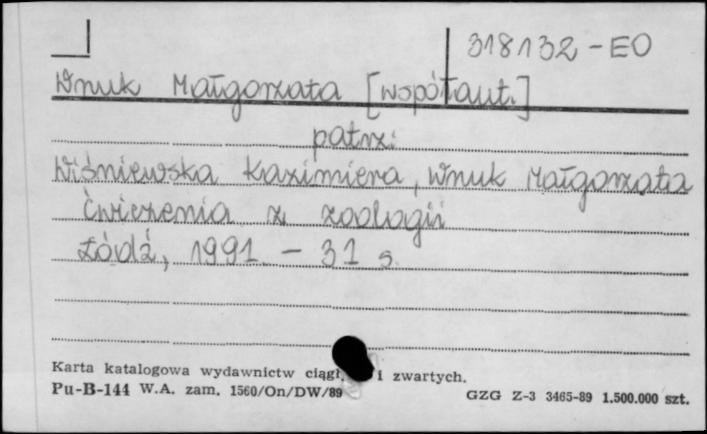 318132-EO
Wnuk Małgorzata [współaut.]
patrz:
Wiśniewska Kazimiera, Wnuk Małgorzata
Ćwiczenia z zoologii
Łódź, 1991. - 31 s.
Karta katalogowa wydawnictw ciągł. i zwartych.
Pu-B-144 W.A. zam. 1560/On/DW/89
GZG Z-3 3465-89 1.500.000 szt.